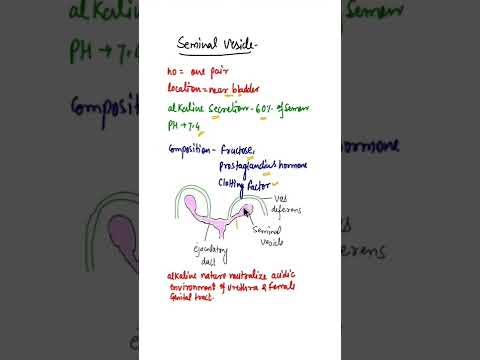 Seminal Vesicle-
no = one pair
location = near bladder
alkaline Secretion - 60% of Semen
PH → 7.4
Composition - fructose,
Prostaglandins hormone
Clotting factor
Vas
deferens
Seminal
vesicle
ejaculatory
duct
alkaline nature neutralize acidic
environment of urethra & female
Genital tract.